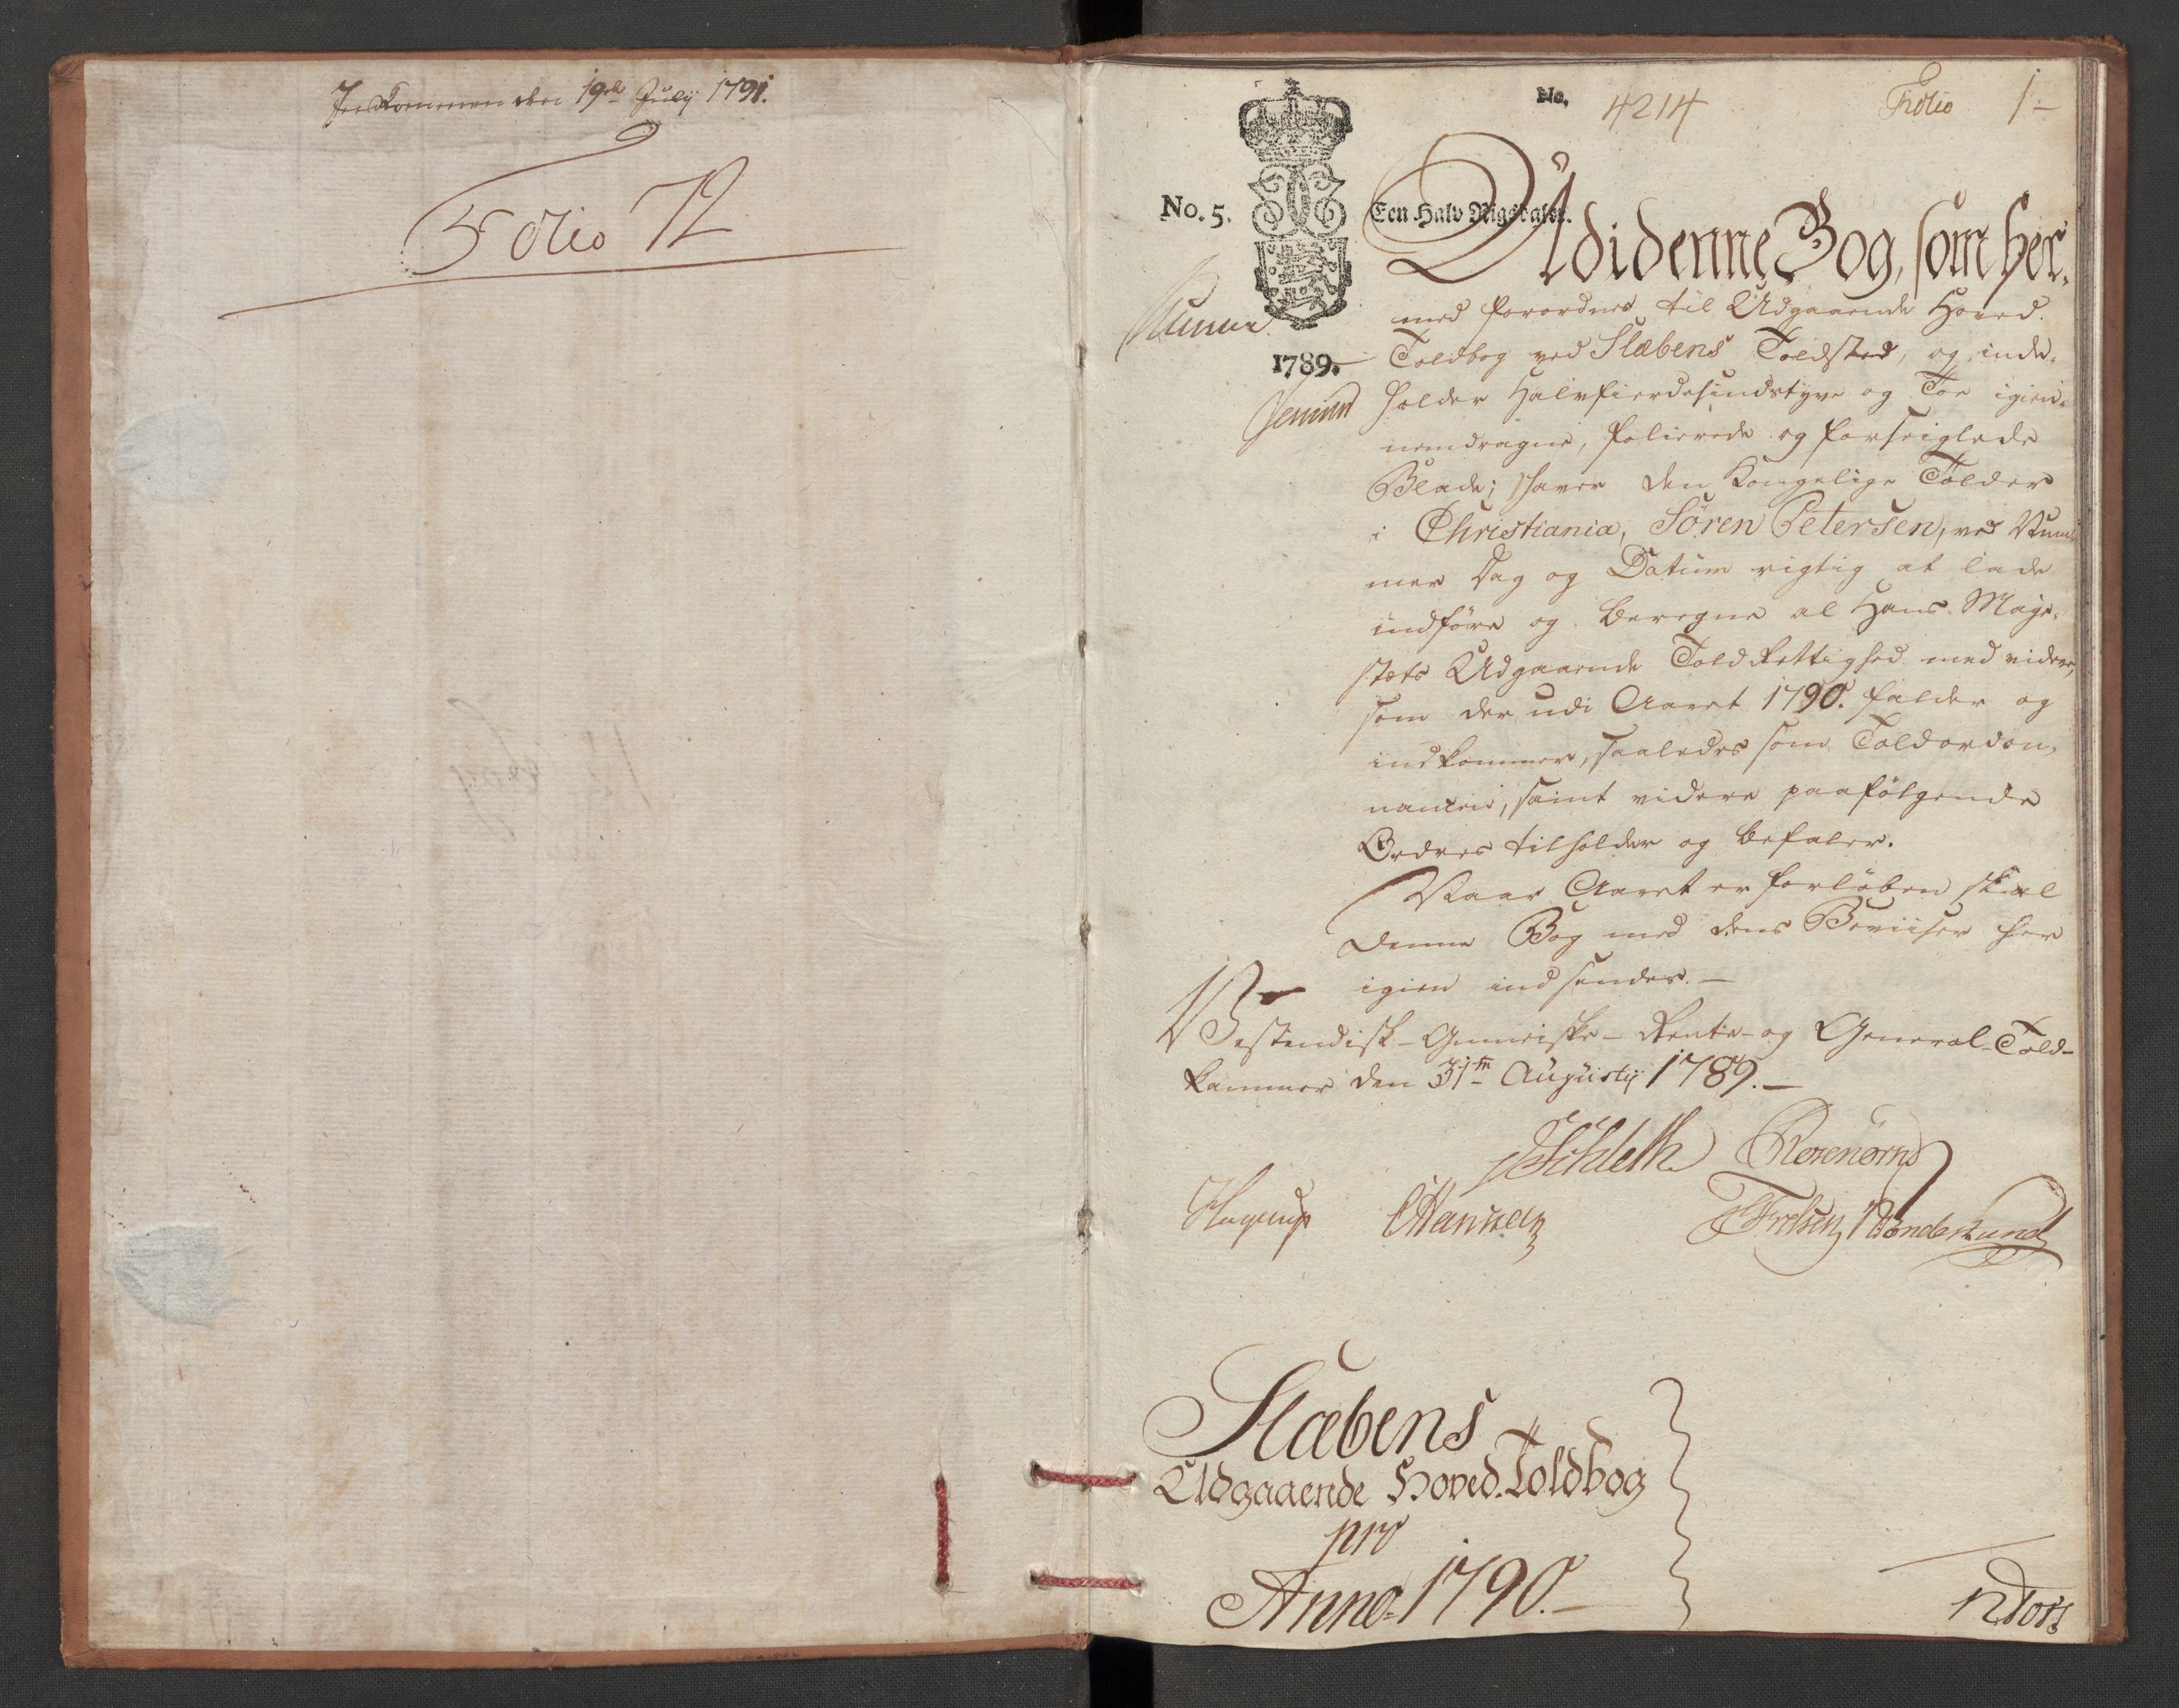 Indkommen den 19de Julij 1791.
Folio 72
No. 4214 Folio 1-
No. 5. Een Halv Rigsdaler.
1789.
Udi denne Bog, som her-
med forordnes til Udgaaende Hoved-
Toldbog ved Slæbens Toldsted, og inde-
holder Halvfierdesindstyve og Toe igien-
nemdragne, folierede og forseiglede
Blade; haver den Kongelige Tolder
i Christiania, Sören Petersen, ved Num-
mer Dag og Datum rigtig at lade
indföre og beregne al Hans Maje-
stæts Udgaaende Told Rettighed med videre,
som der udi Aaret 1790. falder og
indkommer, saaledes som Toldordon-
nancen, samt videre paafölgende
Ordres tilholder og befaler.
Naar Aaret er forlöben skal
denne Bog med dens Beviiser her
igien indsendes. —
Vestindisk-Guineiske-Rente-og General-Told-
kammer den 31te Augustij 1789. —
Rosenörn
Hagerup CHansen
Slæbens
Udgaaende Hoved-Toldbog
pro
Anno 1790. —